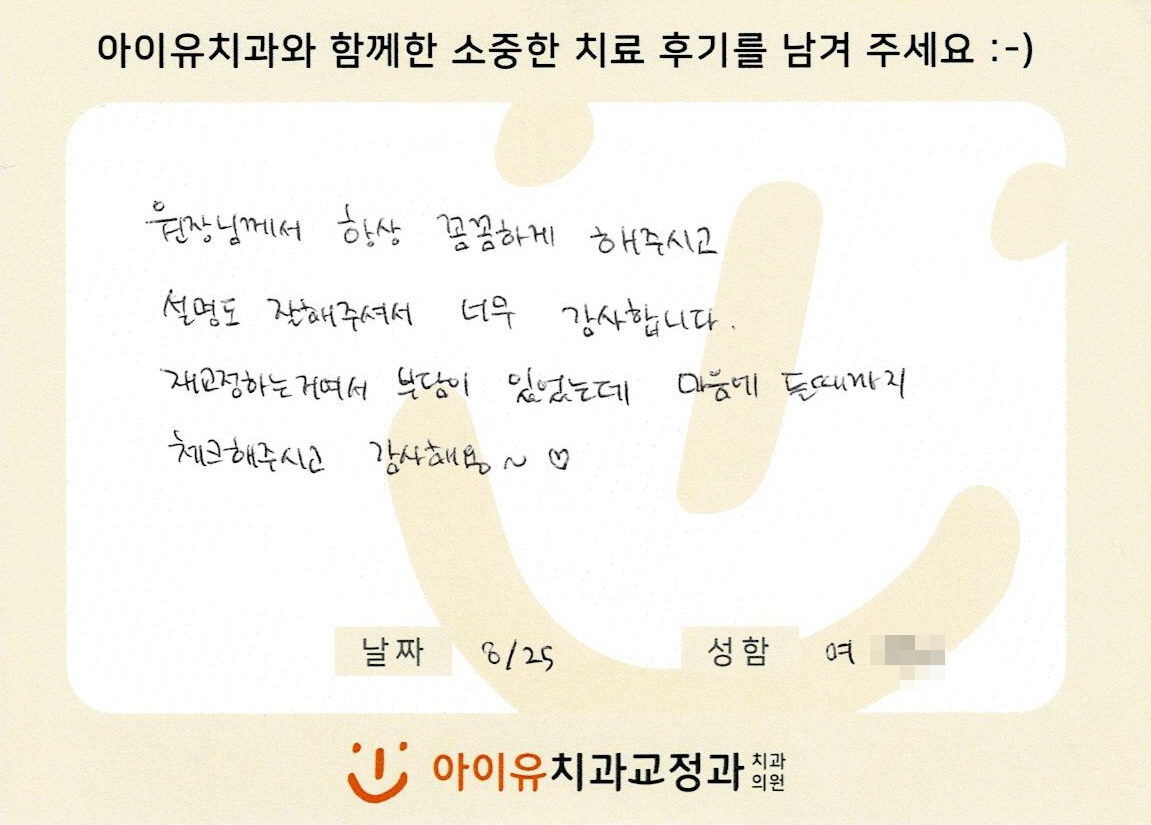 아이유치과와 함께한 소중한 치료 후기를 남겨 주세요 :-)
원장님께서 항상 꼼꼼하게 해주시고
설명도 잘해주셔서 너무 감사합니다.
재교정하는거여서 부담이 있었는데 마음에 들때까지
체크해주시고 감사해용~♡
날짜 8/25 성함 여
아이유치과교정과 치과의원